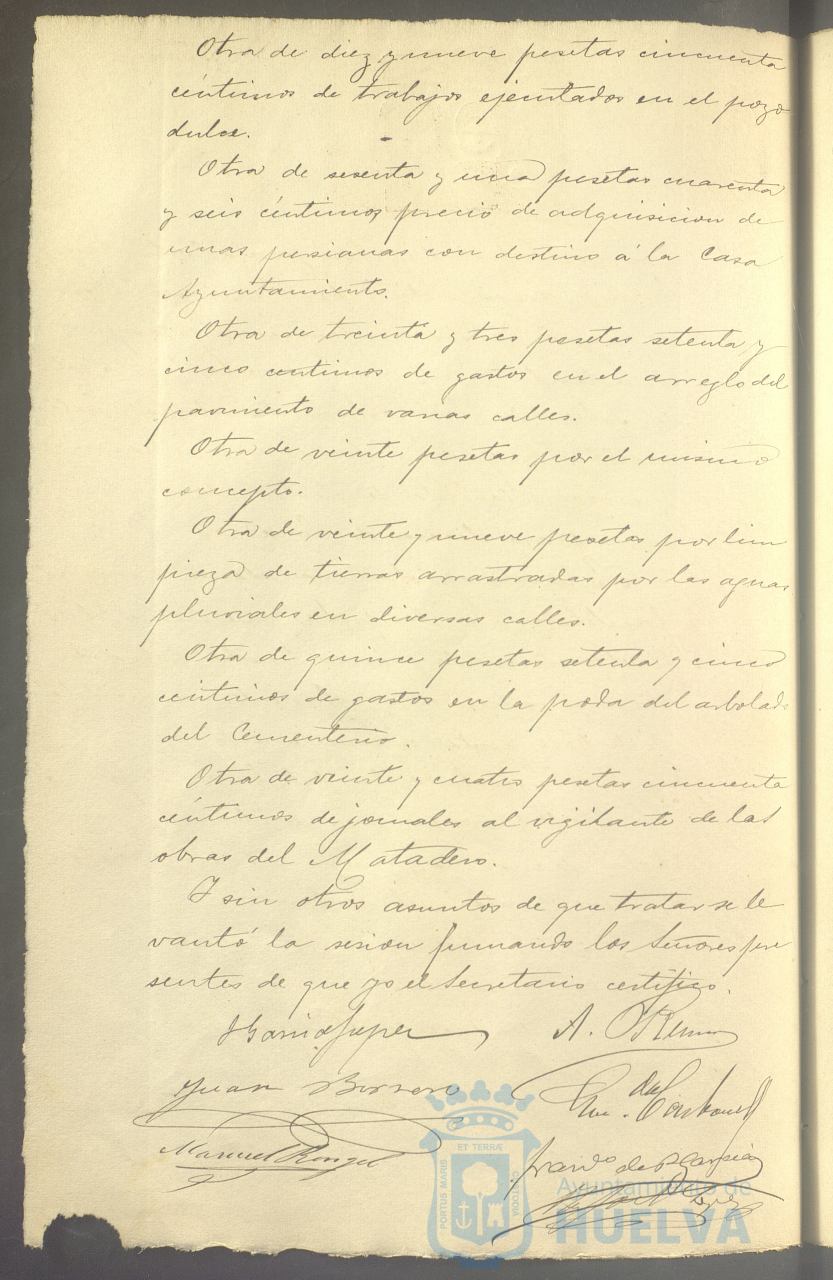 Otra de diez y nueve pesetas cincuenta
céntimos de trabajos ejecutados en el pozo
dulce.
Otra de sesenta y una pesetas cuarenta
y seis céntimos precio de adquisicion de
unas persianas con destino á la Casa
Ayuntamiento.
Otra de treinta y tres pesetas setenta y
cinco centimos de gastos en el arreglo del
pavimento de varias calles.
Otra de veinte pesetas por el mismo
concepto.
Otra de veinte y nueve pesetas por lim
pieza de tierras arrastradas por las aguas
pluviales en diversas calles.
Otra de quince pesetas setenta y cinco
céntimos de gastos en la poda del arbolado
del Cementerio.
Otra de veinte y cuatro pesetas cincuenta
céntimos de jornales al vigilante de las
obras del Matadero.
Y sin otros asuntos de que tratar se le
vantó la sesion firmando los Señores pre
sentes de que yo el Secretario certifico.
A.
Juan Borrero
Manuel Rengel
de García
PORTUS MARIS
ET TERRÆ
CUSTODIA
Ayuntamiento de
HUELVA